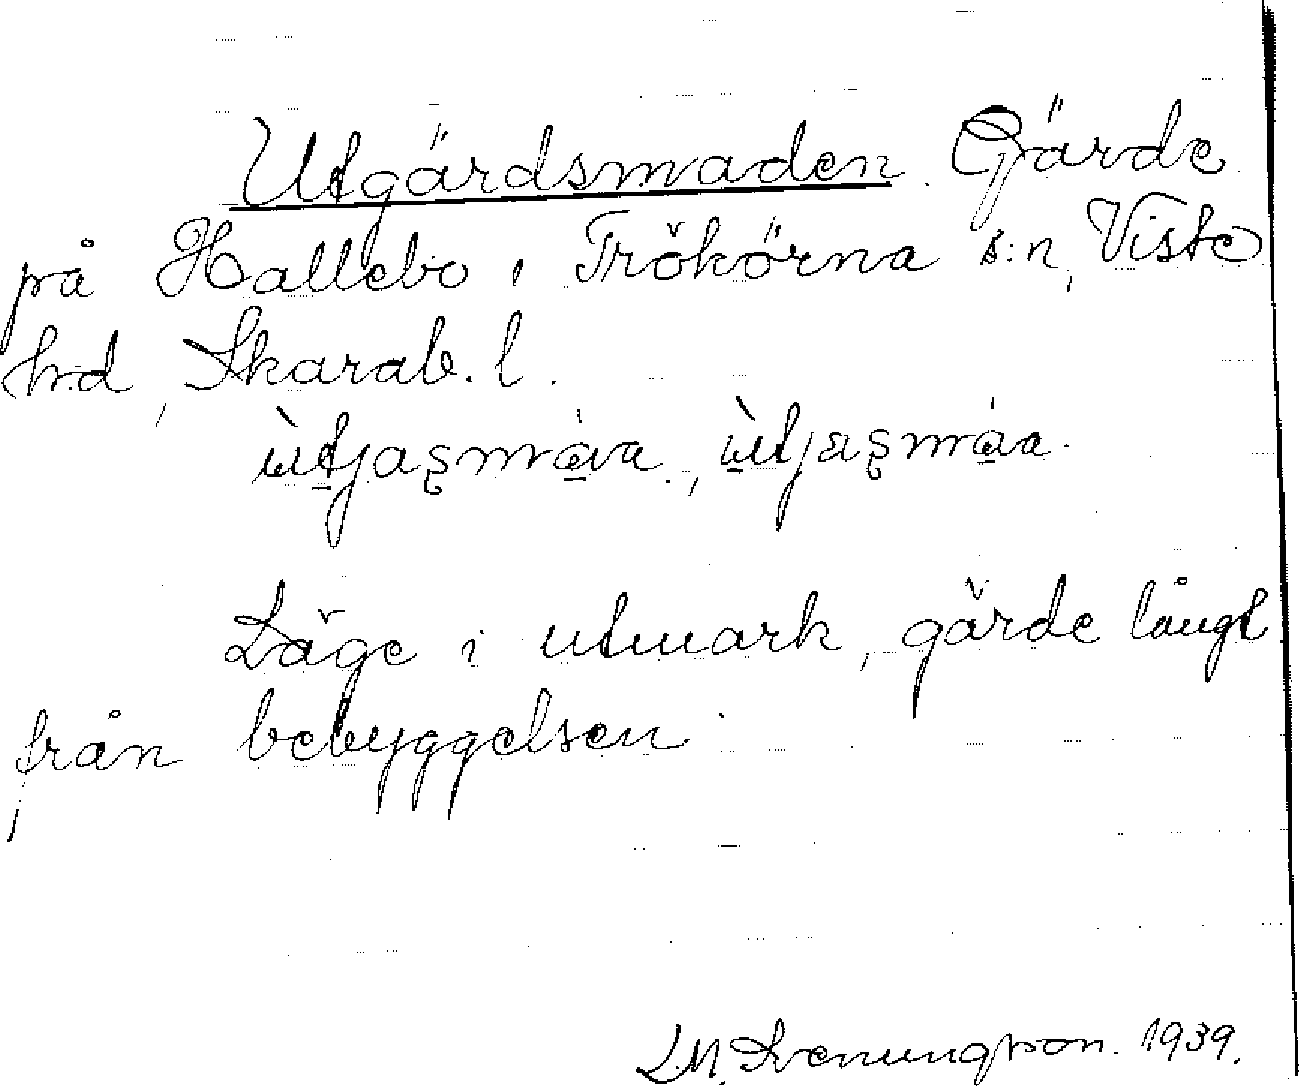 Utgärdsmaden. Gärde
på Hallebo i Trökörna s:n, Viste
hd, Skarab. l.
Läge i utmark, gärde långt
från bebyggelsen.
L.M. Svenungsson. 1939.